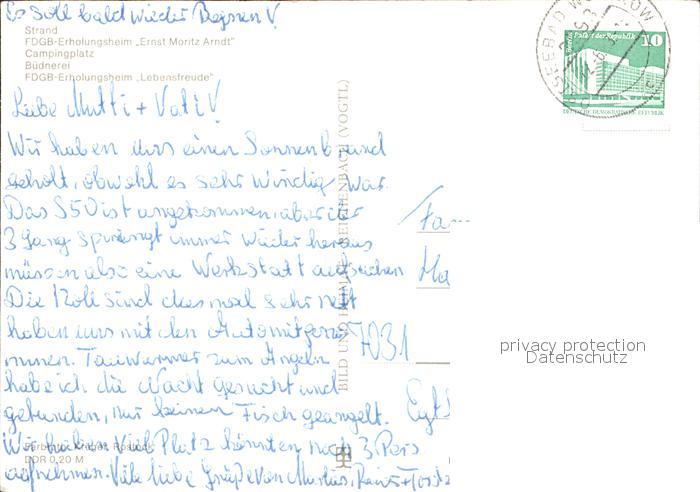 Es soll bald wieder Regnen!
Strand
FDGB-Erholungsheim „Ernst Moritz Arndt"
Campingplatz
Büdnerei
FDGB-Erholungsheim „Lebensfreude"
Liebe Mutti + Vati!
Wir haben uns einen Sonnenbrand
geholt, obwohl es sehr windig war.
Das S50 ist angekommen, aber der
3 Gang springt immer wieder heraus
müssen also eine Werkstatt aufsuchen
Die sind das mal sehr nett
haben uns mit den Auto mitgeno
mmen. Tauwürmer zum Angeln
habe ich die Nacht gesucht und
gefunden, nur keinen Fisch geangelt.
Wir haben viel Platz könnten noch 3. Pers
aufnehmen. Viele liebe Grüße von
Farbfoto: Kruger, Rostock
DDR 0,20 M
BILD UND HEIMAT REICHENBACH (VOGTL)
OSTSEEBAD WUSTROW
Berlin, Palast der Republik
10
DEUTSCHE DEMOKRATISCHE REPUBLIK
Fam
7031
privacy protection
Datenschutz